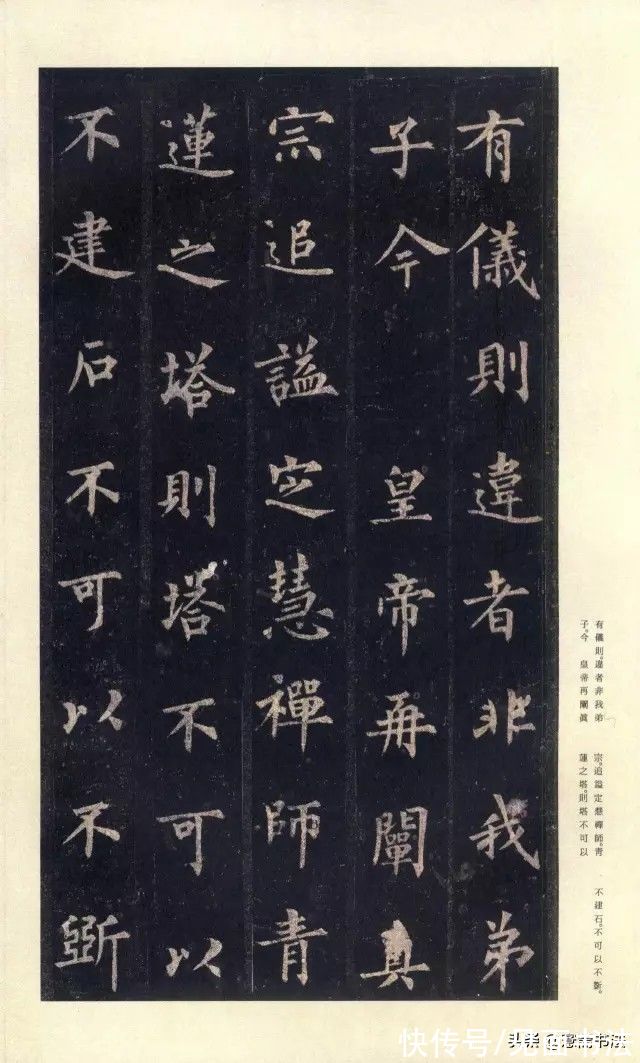 有儀則違者非我弟
子今 皇帝再闡真
宗追謚定慧禪師青
蓮之塔則塔不可以
不建石不可以不斲
有儀則。違者非我弟
子。今 皇帝再闡眞
宗。追謚定慧禪師。青
蓮之塔。則塔不可以
不建。石不可以不斲。